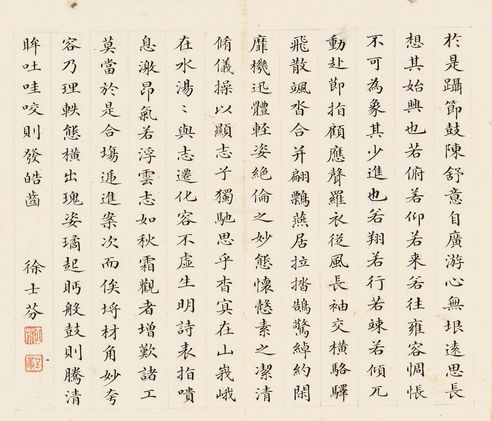 於是躡節鼓陳舒意自廣游心無垠遠思長
想其始興也若俯若仰若来若往雍容惆悵
不可為象其少進也若翔若行若竦若傾兀
動赴節指顧應聲羅衣從風長袖交橫駱驛
飛散颯沓合并翩飄燕居拉揩鵠驚綽約閑
靡機迅體輕姿絕倫之妙態懷愨素之潔清
脩儀操以顯志兮獨馳思乎杳冥在山峩峨
在水湯〻與志遷化容不虛生明詩表指嘳
息激昂氣若浮雲志如秋霜觀者增歎諸工
莫當於是合塲遞進案次而俟埒材角妙夸
容乃理軼態橫出瑰姿璚起眄般鼓則騰清
眸吐哇咬則發皓齒 徐士芬